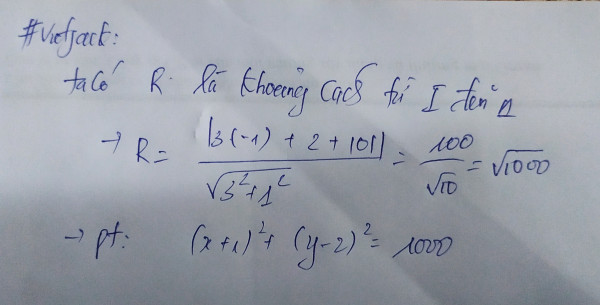 #vietjack:
ta có R là khoảng cách từ I đến Δ
→ R = |3(-1) + 2 + 101| / √(3² + 1²) = 100 / √10 = √1000
→ pt: (x+1)² + (y-2)² = 1000